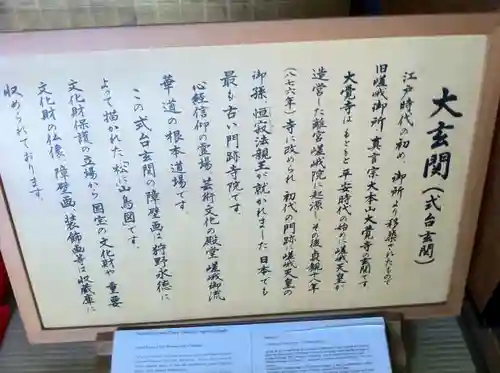 大玄関(式台玄関)
江戸時代の初め、御所より移築されたもので
旧嵯峨御所 真言宗大本山大覚寺の玄関です。
大覚寺は、もともと平安時代の始めに嵯峨天皇が
造営した離宮嵯峨院に起源し、その後貞観十八年
(八七六年)寺に改められ、初代の門跡に嵯峨天皇の
御孫恒寂法親王が就かれました。日本でも
最も古い門跡寺院です。
心経信仰の霊場、芸術文化の殿堂、嵯峨御流
華道の根本道場です。
この式台玄関の障壁画、狩野永徳に
よって描かれた「松に山鳥図」です。
文化財保護の立場から国宝の文化財や、重要
文化財の仏像、障壁画、装飾画等は収蔵庫に
収められております。